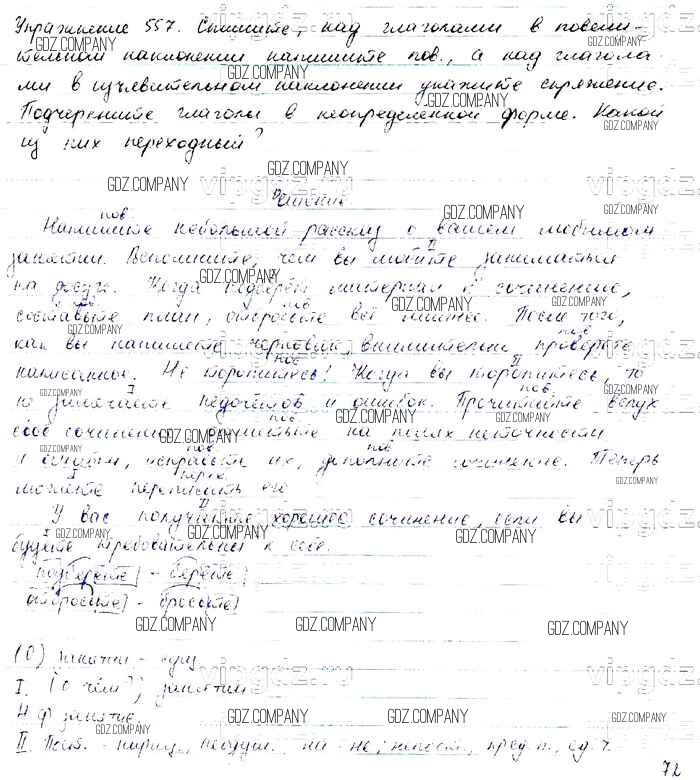 Упражнение 557. Спишите, над глаголами в повели-
тельном наклонении напишите пов., а над глагола-
ми в изъявительном наклонении укажите спряжение.
Подчеркните глаголы в неопределенной форме. Какой
из них переходный?
Решение.
пов.
Напишите небольшой рассказ о вашем любимом
II
занятии. Вспомните, чем вы любите заниматься
на досуге. Когда подберёте материал к сочинению,
пов. пов.
составьте план, отбросьте всё лишнее. После того,
пов.
как вы напишете черновик, внимательно проверьте
пов. II
написанное. Не торопитесь! Когда вы торопитесь, то
I пов.
не замечаете недочётов и ошибок. Прочитайте вслух
пов.
своё сочинение, отметьте на полях неточности
пов. пов.
и ошибки, исправьте их, дополните сочинение. Теперь
I перех.
можете переписать его
II
У вас получится хорошее сочинение, если вы
I
будете требовательны к себе.
подберёте - берёте
отбросьте - бросьте
(О) занятии - сущ.
I. (О чём?) занятии
Н.ф. занятие.
II. Пост. - нариц., неодуш. ед. ч.
72
GDZ.COMPANY
vipgdz.ru